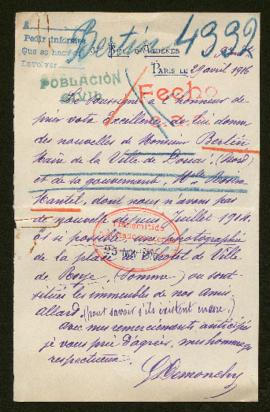 A
Pedir informe
Que se haga
Devolver
Bertin 4332
PARIS LE 29 avril 1916
POBLACIÓN
CIVIL
Fecho
Le soussigné a l'honneur de
prier votre excellence de lui donner
des nouvelles de Monsieur Bertin
Maire de la Ville de Douai (Nord)
et de la gouvernante, Melle
Hautel, dont nous n'avons pas
de nouvelle depuis Juillet 1914.
et si possible une photographie
de la place de l'hotel de Ville
de (Somme) ou sont
situés les immeubles de nos amis
Allard. (pour savoir s'ils existent encore.)
avec mes remerciements anticipés
je vous prie d'agréer, mes hommages
respectueux
GDemonchy